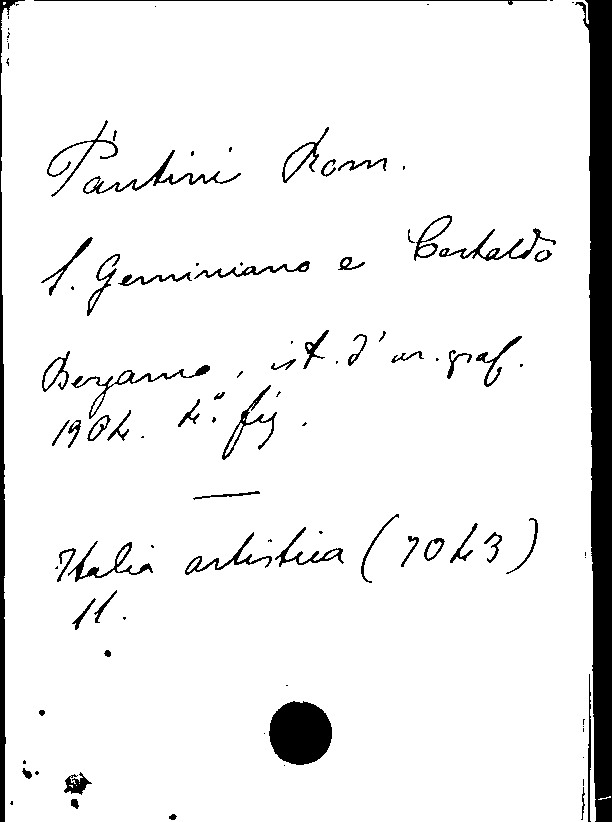 Pantini Rom.
S. Geminiano e Certaldo
Bergamo, ist. d'ar. graf.
1904. 4º. fig.
Italia artistica (7043)
11.